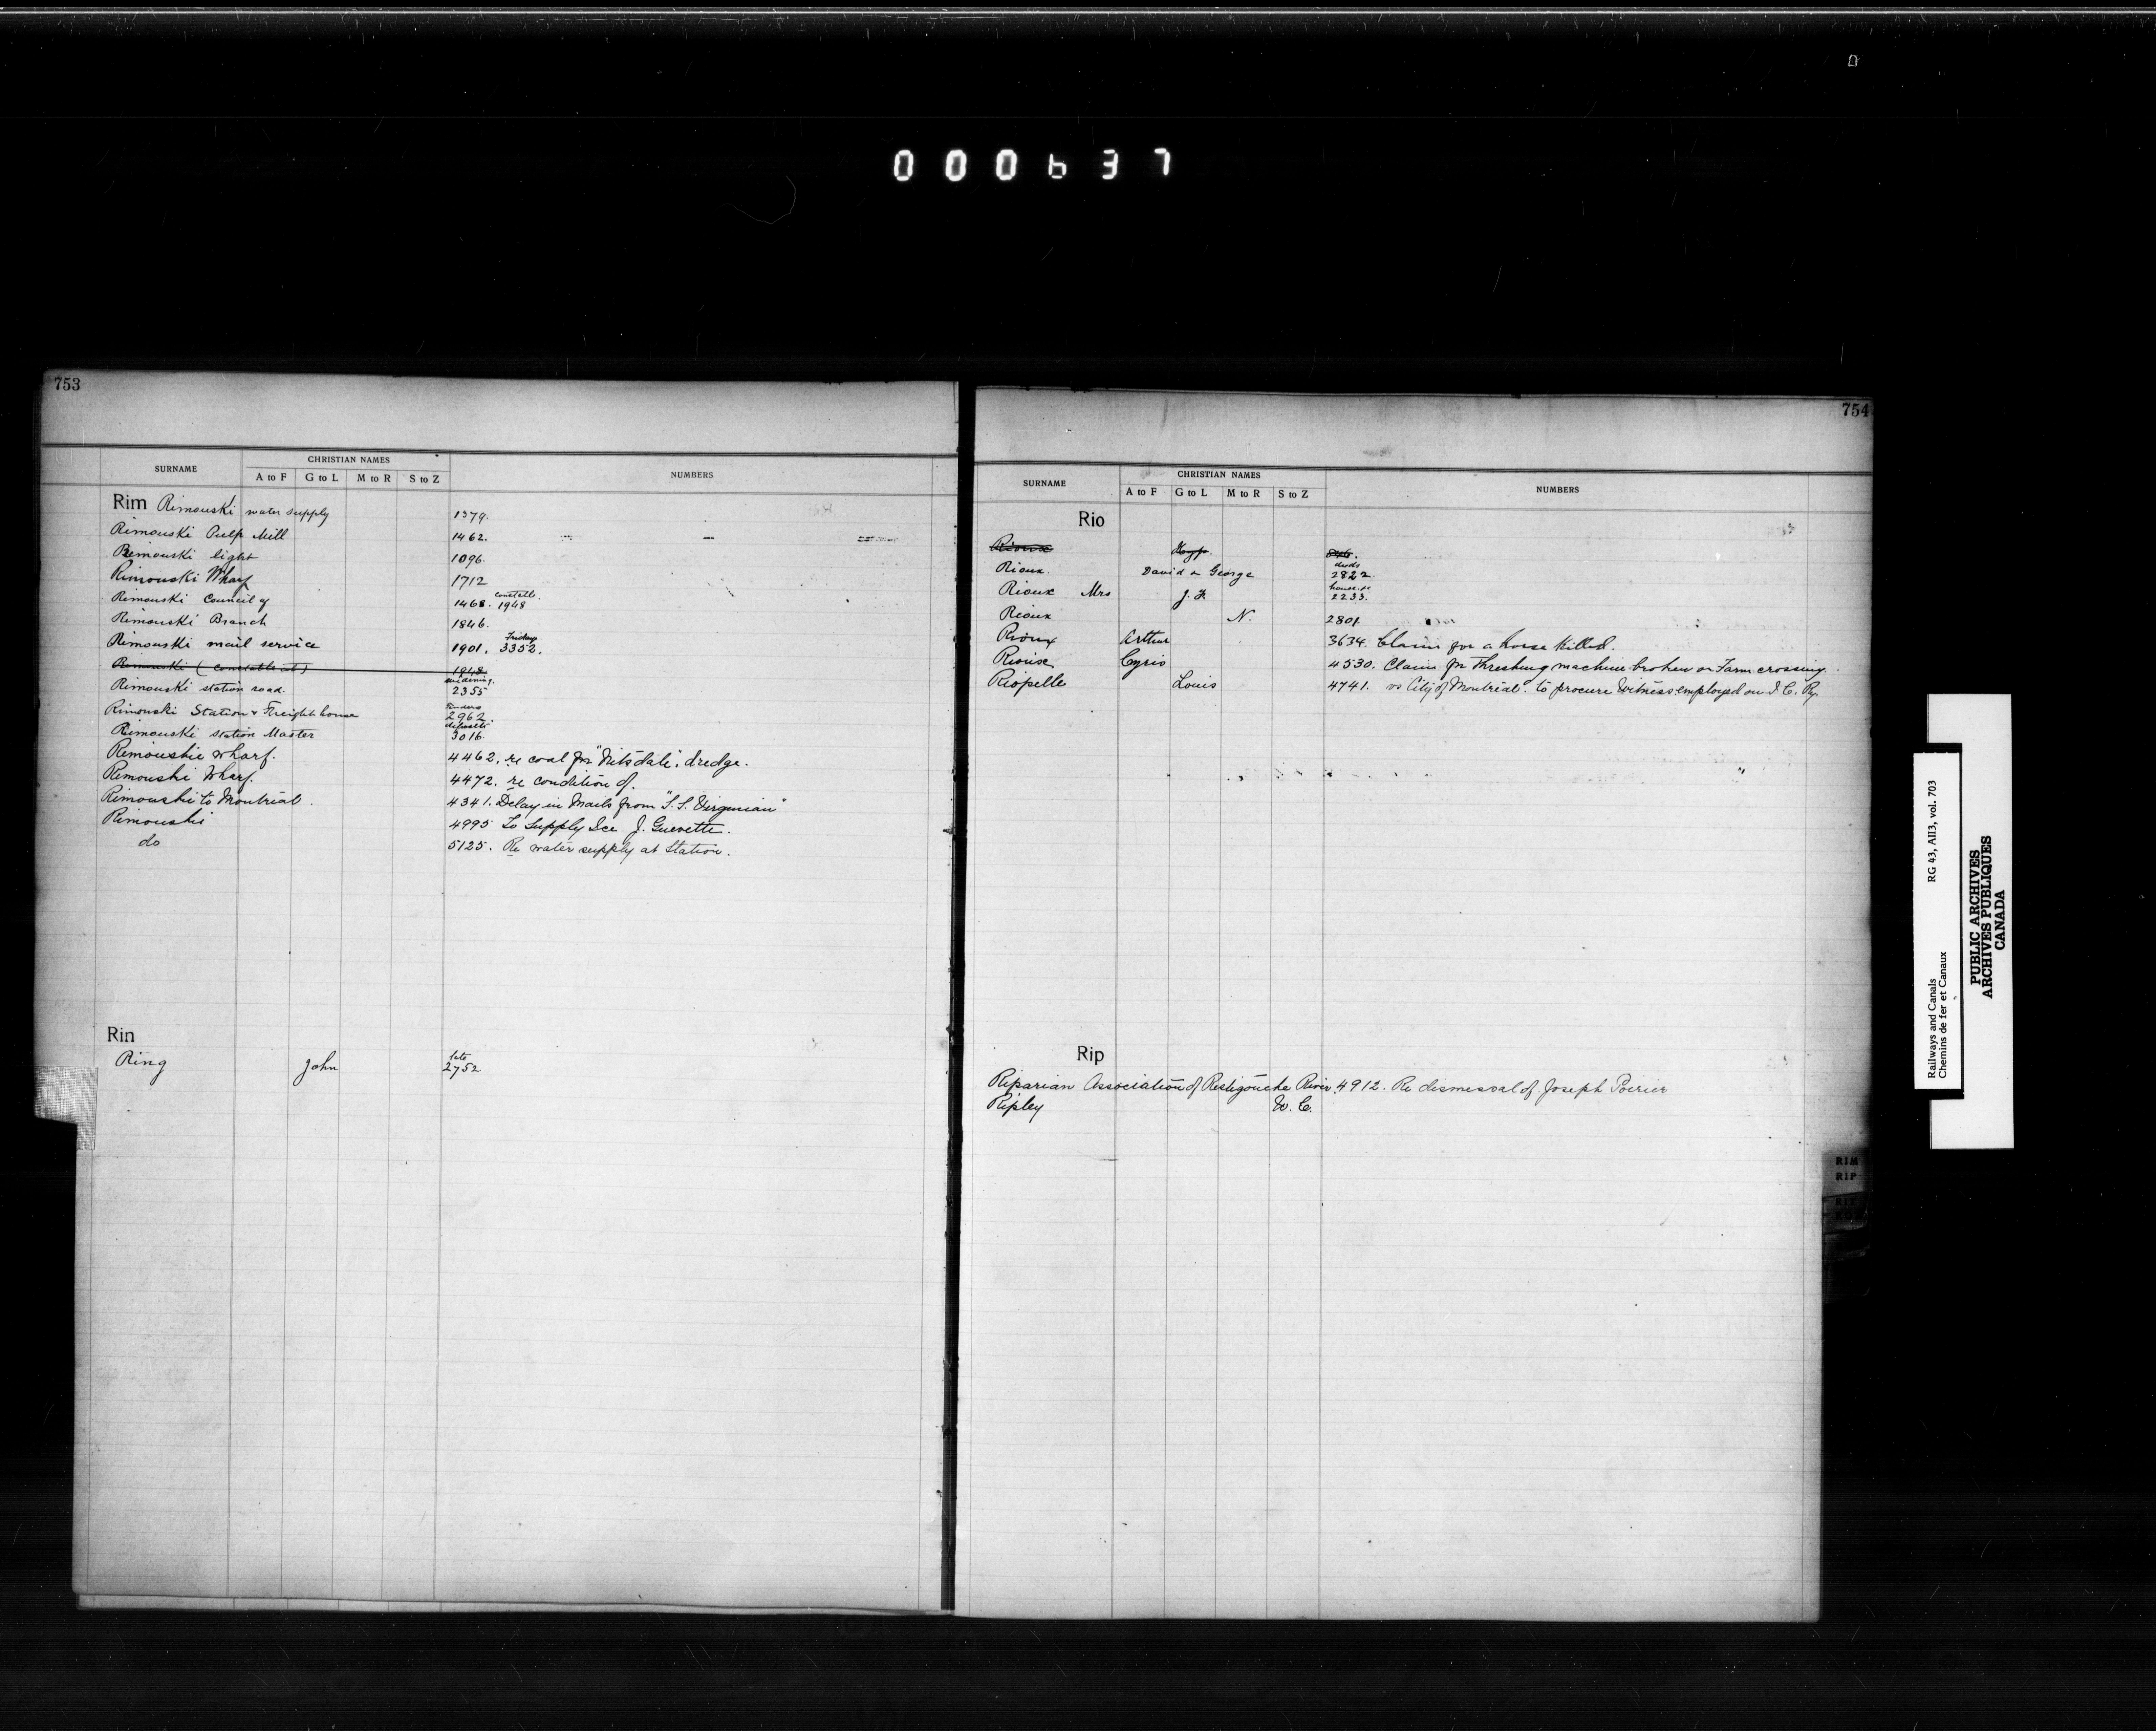 000637
753
SURNAME CHRISTIAN NAMES NUMBERS
A to F G to L M to R S to Z
Rim Rimouski water supply 1379.
Rimouski Pulp Mill 1462.
Rimouski light 1096.
Rimouski Wharf 1712
Rimouski Council of 1468. constable. 1948
Rimouski Branch 1846.
Rimouski mail service 1901. Fridays 3352.
Rimouski (Constable at) 1948
Rimouski station road. widening. 2355
Rimouski Station & Freight house tenders 2962
Rimouski station Master 3016
Rimouskie Wharf. 4462. re coal for dredge.
Rimouski Wharf. 4472. re condition of.
Rimouski to Montreal. 4341. Delay in Mails from "S.S. Virginian"
Rimouski 4995 To Supply Ice J. Guevette.
do 5125. Re water supply at Station.
Rin
Ring John late 2752
754
SURNAME CHRISTIAN NAMES NUMBERS
A to F G to L M to R S to Z
Rio
Rioux
Rioux. David & George deeds 2822.
Rioux Mrs J. F. house re 2233.
Rioux N. 2801
Rioux Arthur 3634. Claim for a horse killed.
Rioux Cyrio 4530. Claim for Threshing machine broken on Farm crossing.
Riopelle Louis 4741. vs City of Montreal. to procure Witness employed on I. C. Ry.
Rip
Riparian Association of Restigouche River. 4912. Re dismissal of Joseph Poirier
Ripley W. C.
RIM
RIP
Railways and Canals RG 43, AII3, vol. 703
Chemins de fer et Canaux
PUBLIC ARCHIVES
ARCHIVES PUBLIQUES
CANADA